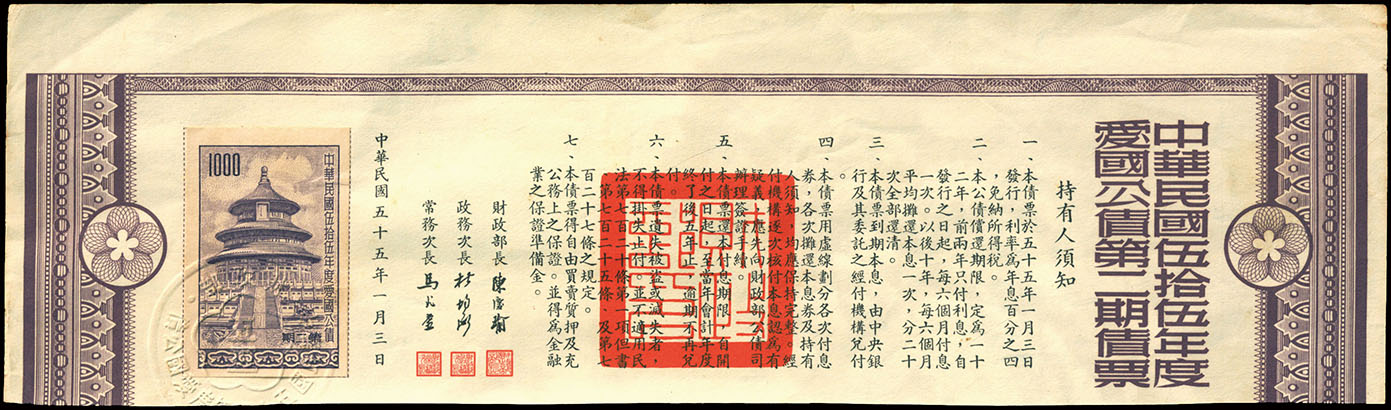 中華民國伍拾伍年度
愛國公債第二期債票
持有人須知
一、本債票於五十五年一月三日
發行，利率為年息百分之四
，免納所得稅。
二、本公債償還期限，定為一十
二年，前兩年只付利息，自
發行之日起，每六個月付息
一次。以後十年，每六個月
平均攤還本息一次，分二十
次全部還清。
三、本債票到期本息，由中央銀
行及其委託之經付機構兌付
。
四、本債票用虛線劃分各次付息
券，各次攤還本息券及持有
人須知，均應保持完整。經
付機構逐次核付本息認為有
疑義，應先向財政部公債司
辦理簽證手續。
五、本債票還本付息期限，自開
付之日起，至當年會計年度
終了後五年止，逾期不再兌
付。
六、本債票遺失被盜或滅失者，
不得掛失止付。並不適用民
法第七百二十條第一項但書
、第七百二十五條、及第七
百二十七條之規定。
七、本債票得自由買賣質押及充
公務上之保證。並得為金融
業之保證準備金。
財政部長 陳慶瑜
政務次長 杜均衡
常務次長 馬
中華民國五十五年一月三日
1000
中華民國伍拾伍年度愛國公債
第二期